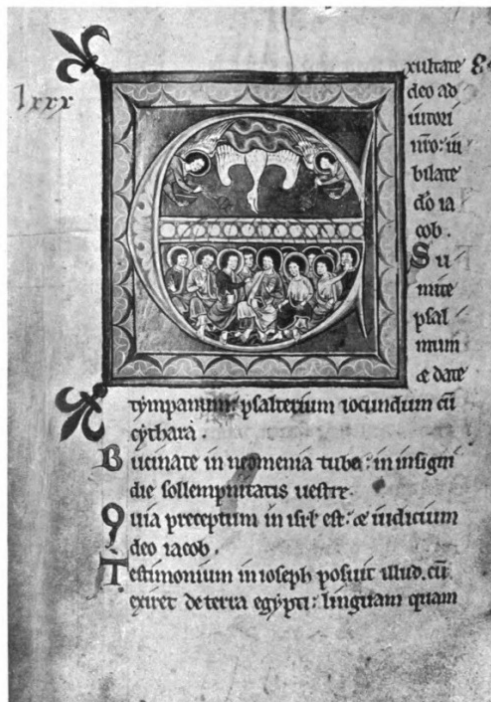 lxxx
xultate
deo ad
iutori
nr̄o: iu
bilate
dō ia
cob.
Su
mite
psal
mum
& date
tympanum: psalterium iocundum cū
cythara.
Bucinate in neomenia tuba: in insigni
die sollempnitatis uestrę.
Quia preceptum in isr̄l est: & iudicium
deo iacob.
Testimonium in ioseph posuit illud. cū
exiret de terra egypti: linguam quam